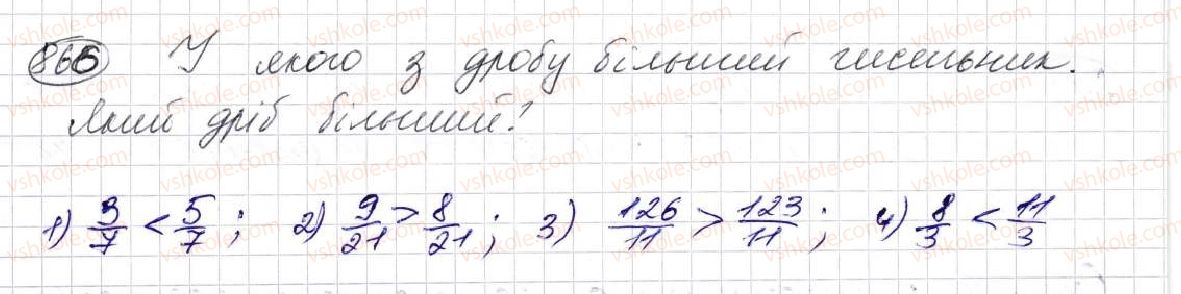 866 У якого з дробу більший чисельник.
Який дріб більший?
1) 3/7 < 5/7; 2) 9/21 > 8/21; 3) 126/11 > 123/11; 4) 8/3 < 11/3